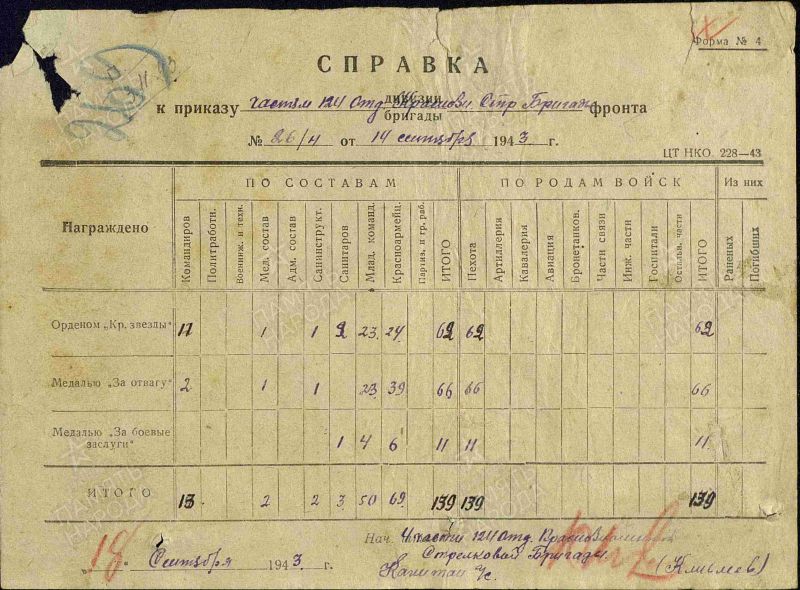 Форма № 4
СПРАВКА
к приказу частям 124 Отд. дивизии бригады Стр Бригады фронта
№ 26/н от 14 сентября 1943 г.
ЦТ НКО. 228—43
Награждено
ПО СОСТАВАМ
ПО РОДАМ ВОЙСК
Из них
Командиров
Политработн.
Военинж. и техн.
Мед. состав
Адм. состав
Санинструкт.
Санитаров
Млад. команд.
Красноармейц.
Партиз. и гр. раб.
ИТОГО
Пехота
Артиллерия
Кавалерия
Авиация
Бронетанков.
Части связи
Инж. части
Госпитали
Остальн. части
ИТОГО
Раненых
Погибших
Орденом „Кр. звезды“ 11 1 1 2 23 24 62 62 62
Медалью „За отвагу“ 2 1 1 23 39 66 66 66
Медалью „За боевые заслуги“ 1 4 6 11 11 11
ИТОГО 13 2 2 3 50 69 139 139 139
Нач. 4 части 124 отд.
„18“ Сентября 1943 г.
Стрелковой Бригады
Капитан а/с.